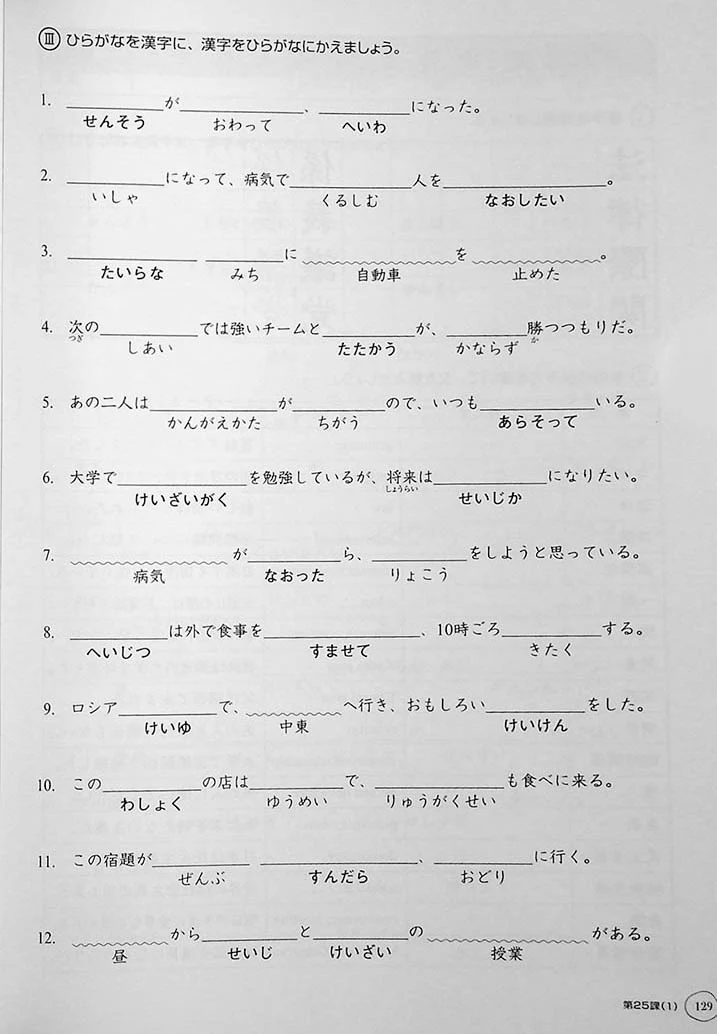 Ⅲ ひらがなを漢字に、漢字をひらがなにかえましょう。
1. ＿＿＿が＿＿＿、＿＿＿になった。
せんそう おわって へいわ
2. ＿＿＿になって、病気で＿＿＿人を＿＿＿。
いしゃ くるしむ なおしたい
3. ＿＿＿ ＿＿＿に＿＿＿を＿＿＿。
たいらな みち 自動車 止めた
4. 次の＿＿＿では強いチームと＿＿＿が、＿＿＿勝つつもりだ。
つぎ しあい たたかう かならず か
5. あの二人は＿＿＿が＿＿＿ので、いつも＿＿＿いる。
かんがえかた ちがう あらそって
6. 大学で＿＿＿を勉強しているが、将来は＿＿＿になりたい。
けいざいがく しょうらい せいじか
7. ＿＿＿が＿＿＿ら、＿＿＿をしようと思っている。
病気 なおった りょこう
8. ＿＿＿は外で食事を＿＿＿、10時ごろ＿＿＿する。
へいじつ すませて きたく
9. ロシア＿＿＿で、＿＿＿へ行き、おもしろい＿＿＿をした。
けいゆ 中東 けいけん
10. この＿＿＿の店は＿＿＿で、＿＿＿も食べに来る。
わしょく ゆうめい りゅうがくせい
11. この宿題が＿＿＿ ＿＿＿、＿＿＿に行く。
ぜんぶ すんだら おどり
12. ＿＿＿から＿＿＿と＿＿＿の＿＿＿がある。
昼 せいじ けいざい 授業
第25課(1) 129